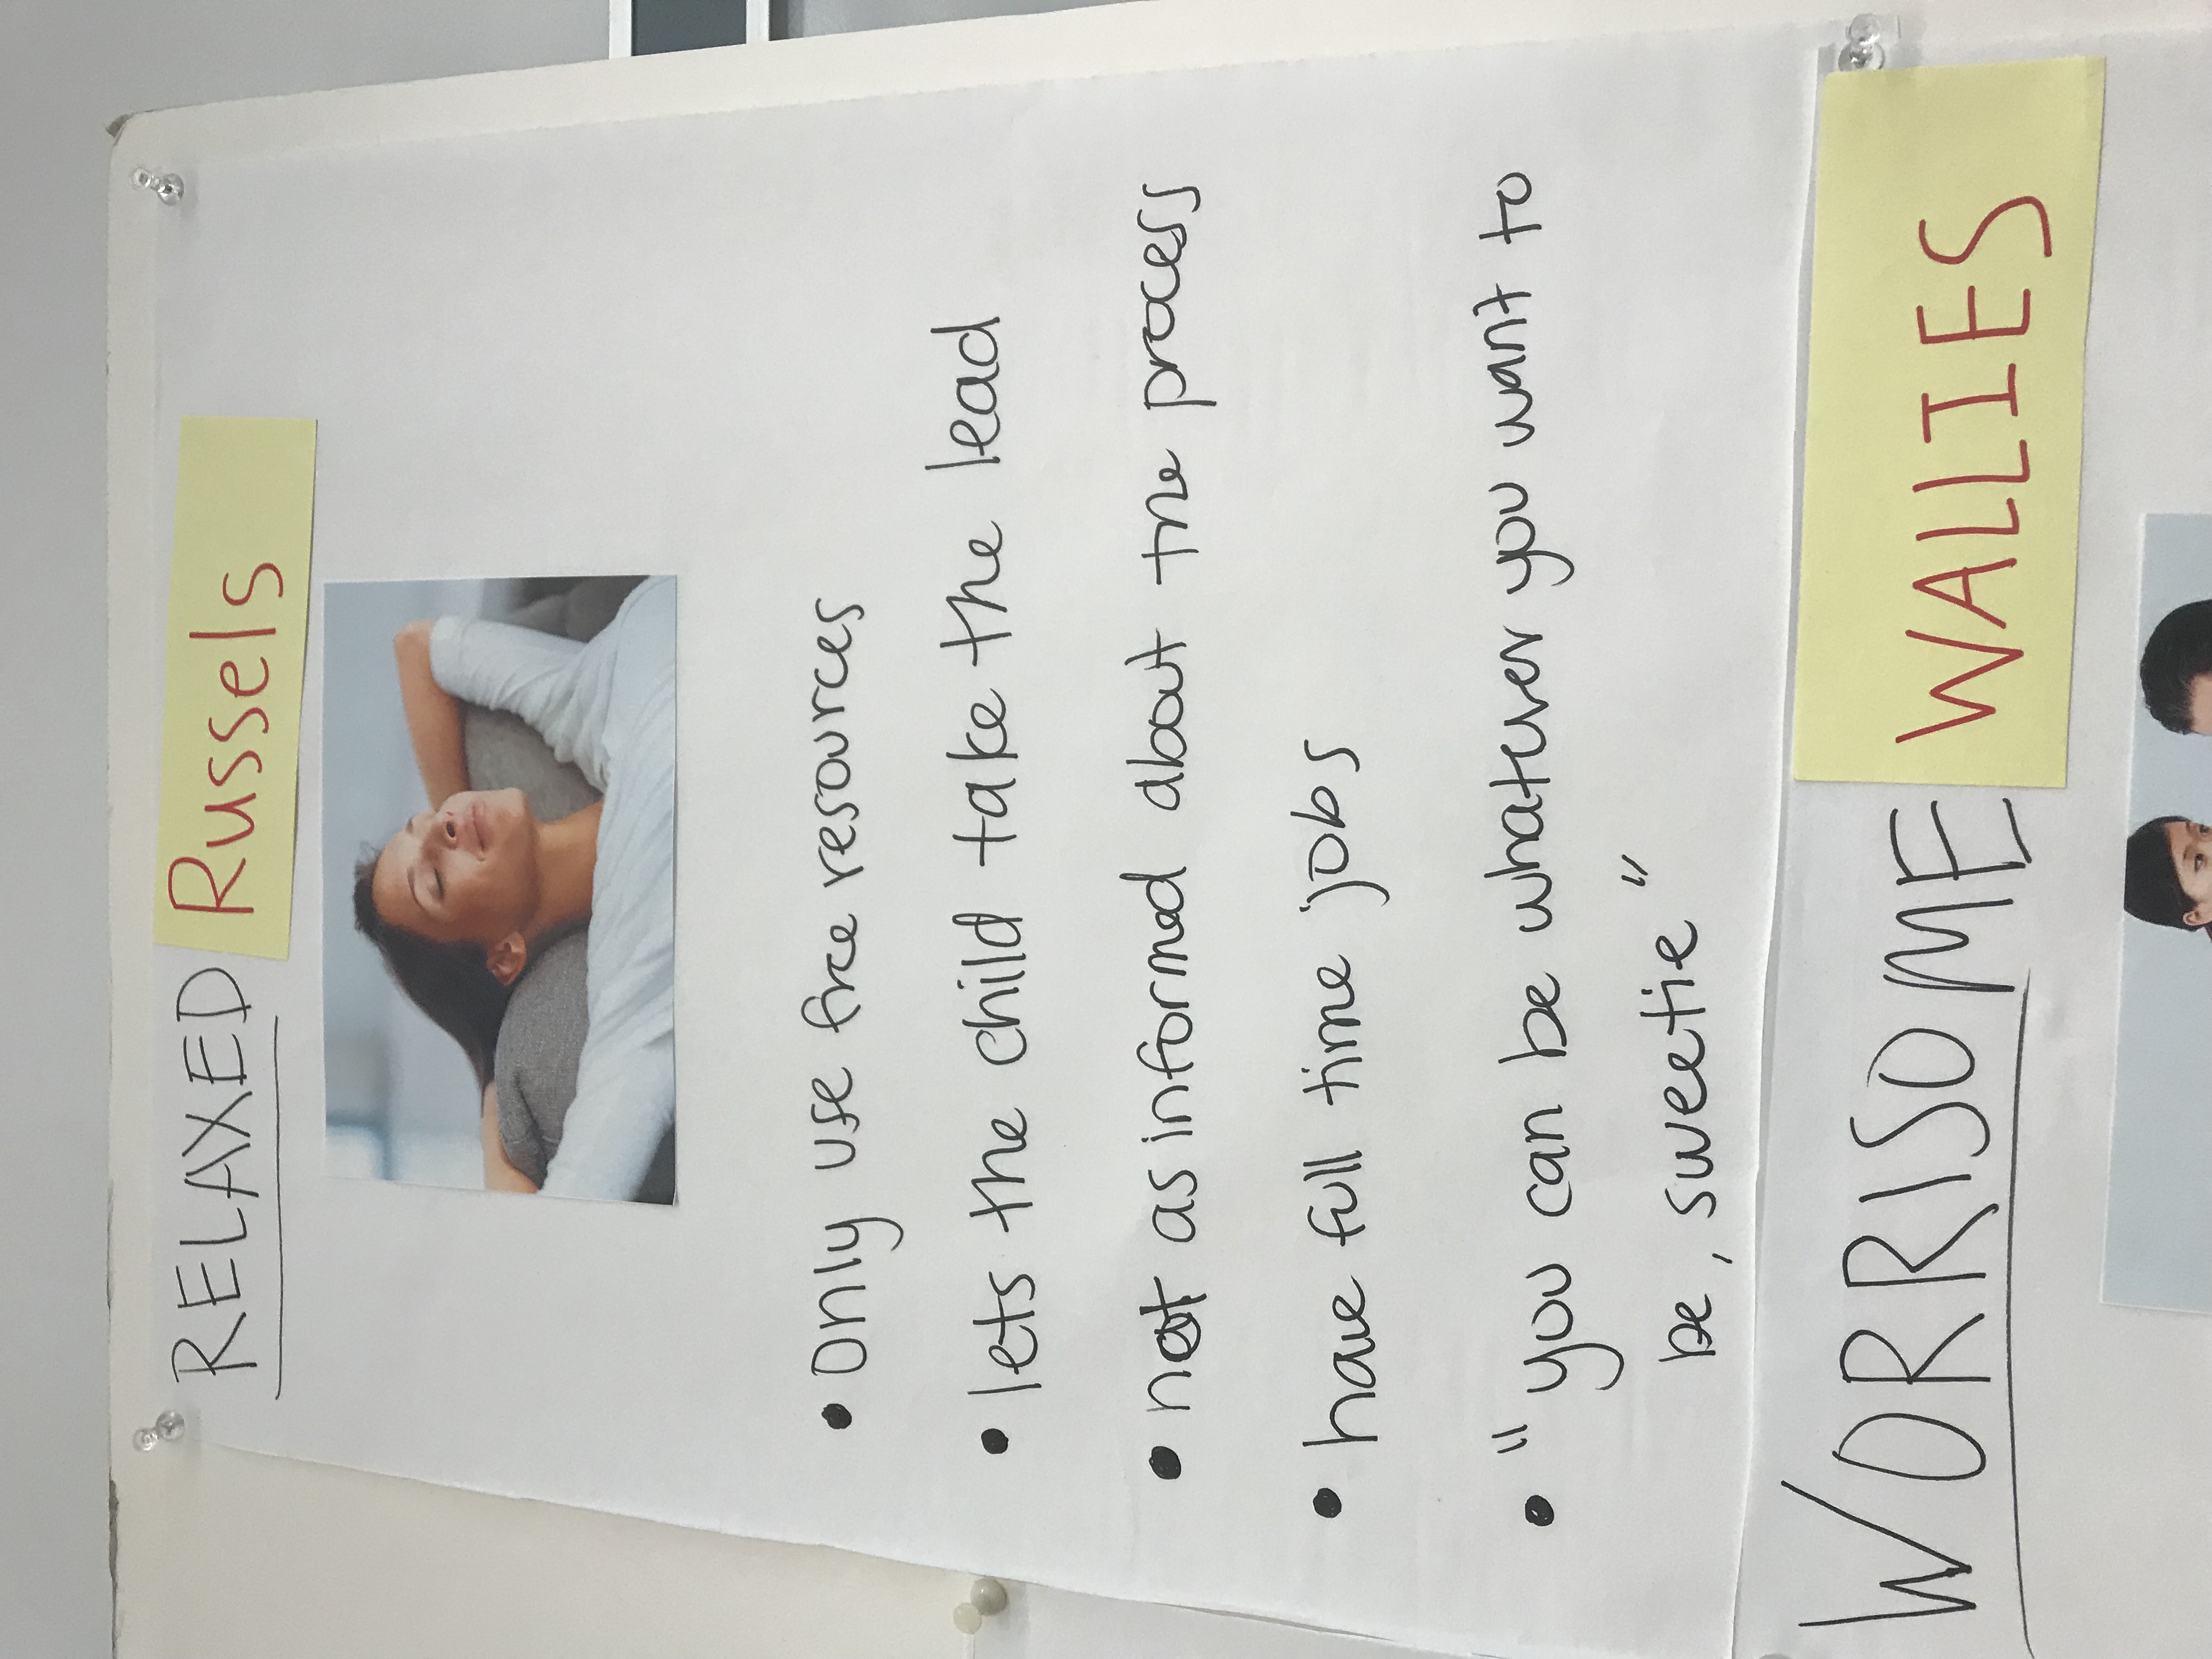 RELAXED Russels
• Only use free resources
• lets the child take the lead
• not as informed about the process
• have full time jobs
• "you can be whatever you want to
be, sweetie"
WORRISOME WALLIES